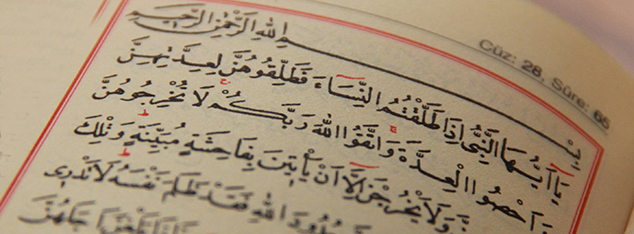 Cüz: 28, Sûre: 65
بِسْمِ اللهِ الرَّحْمٰنِ الرَّحِيمِ
يَٓا اَيُّهَا النَّبِيُّ اِذَا طَلَّقْتُمُ النِّسَٓاءَ فَطَلِّقُوهُنَّ لِعِدَّتِهِنَّ
وَاَحْصُوا الْعِدَّةَۚ وَاتَّقُوا اللهَ رَبَّكُمْۚ لَا تُخْرِجُوهُنَّ
وَلَا يَخْرُجْنَ اِلَّٓا اَنْ يَأْتِينَ بِفَاحِشَةٍ مُبَيِّنَةٍۜ وَتِلْكَ
حُدُودَ اللهِ فَقَدْ ظَلَمَ نَفْسَهُۜ لَا تَدْرِي